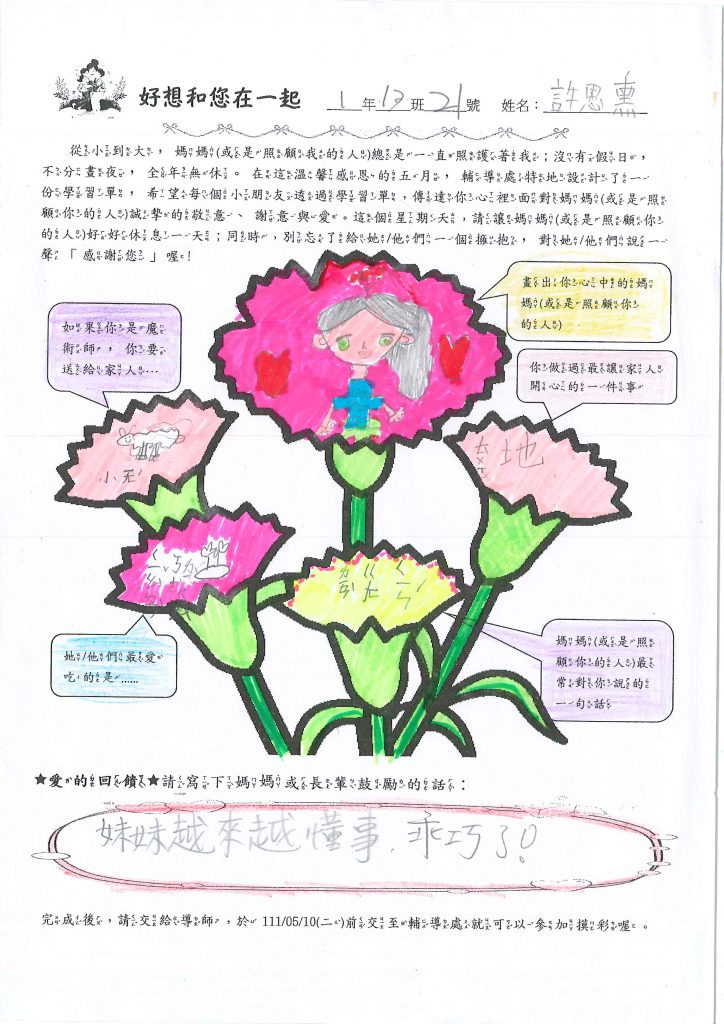 好想和您在一起 1年13班21號 姓名:許恩熏
從小到大,媽媽(或是照顧我的人)總是一直照護著我;沒有假日,
不分晝夜,全年無休。在這溫馨感恩的五月,輔導處特地設計了一
份學習單,希望每個小朋友透過學習單,傳達你心裡面對媽媽(或是照
顧你的人)誠摯的敬意、謝意與愛。這個星期天,請讓媽媽(或是照顧你
的人)好好休息一天;同時,別忘了給她/他們一個擁抱,對她/他們說一
聲「感謝您」喔!
畫出你心中的媽
媽(或是照顧你
的人)
如果你是魔
術師,你要
送給家人…
你做過最讓家人
開心的一件事
小
地
她/他們最愛
吃的是……
媽媽(或是照
顧你的人)最
常對你說的
一句話
★愛的回饋★請寫下媽媽或長輩鼓勵的話:
妹妹越來越懂事、乖巧了!
完成後,請交給導師,於111/05/10(二)前交至輔導處就可以參加摸彩喔。